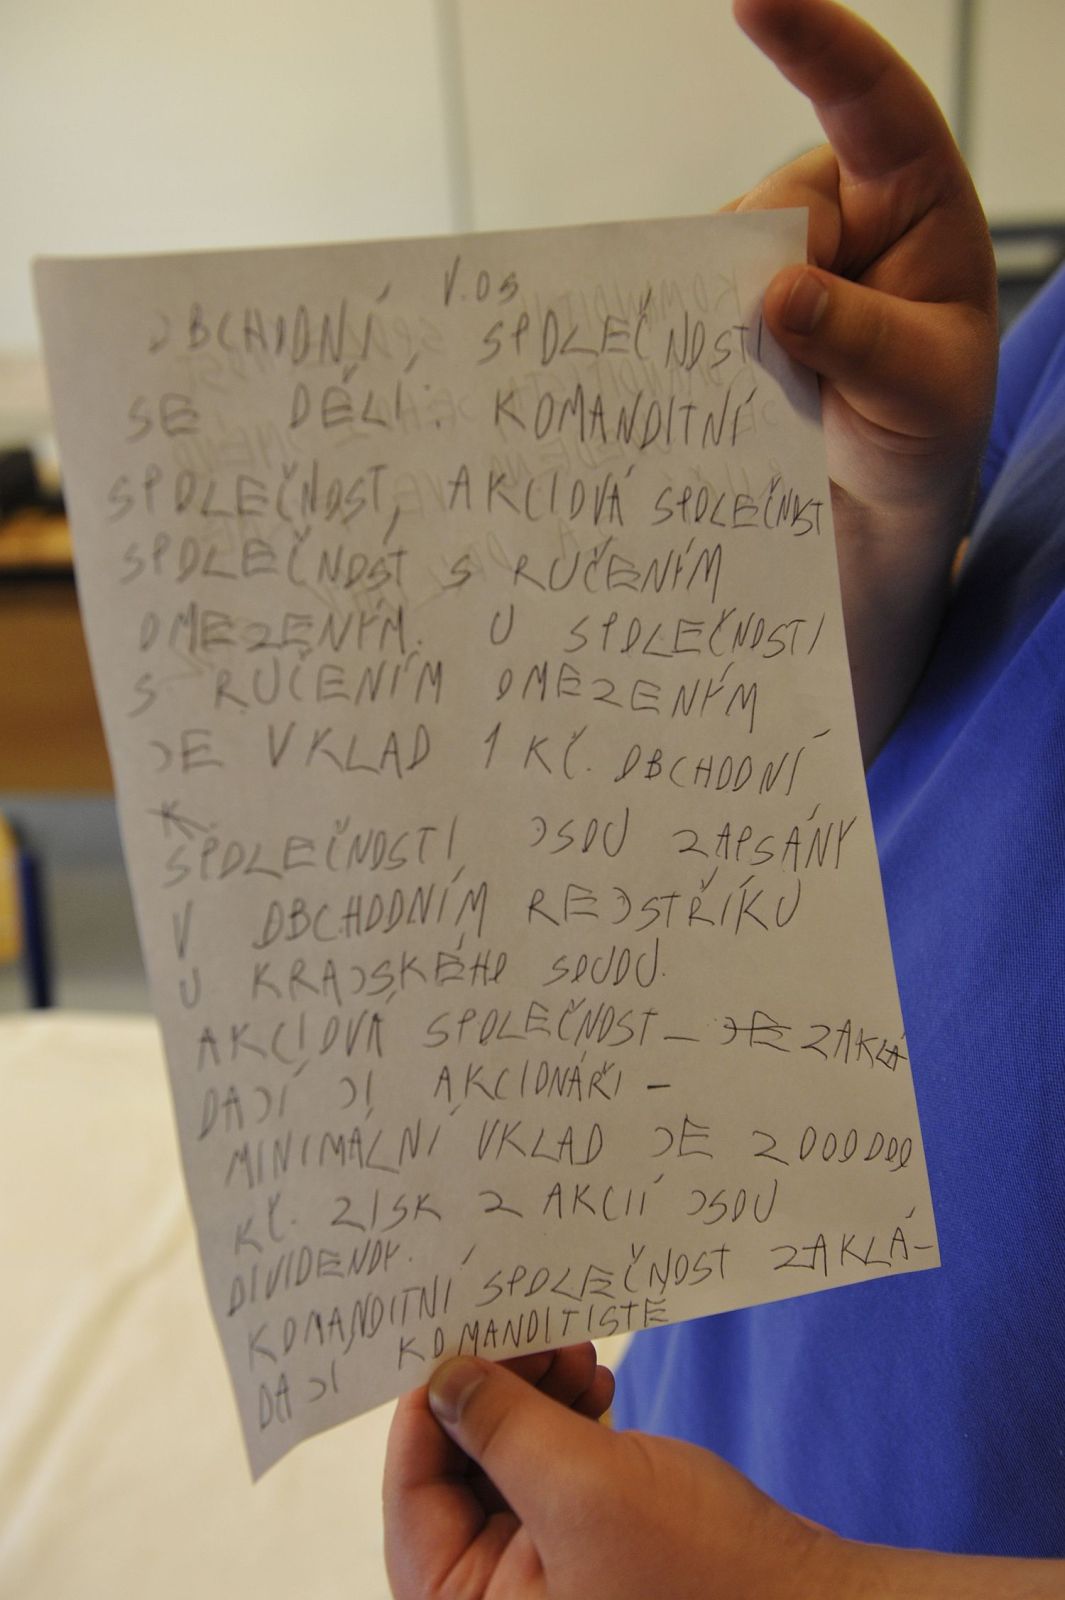 V.OS
OBCHODNÍ, SPOLEČNOSTI
SE DĚLÍ: KOMANDITNÍ
SPOLEČNOST, AKCIOVÁ SPOLEČNOST
SPOLEČNOST S RUČENÍM
OMEZENÝM. U SPOLEČNOSTI
S RUČENÍM OMEZENÝM
JE VKLAD 1 KČ. OBCHODNÍ
K.
SPOLEČNOSTI JSOU ZAPSÁNY
V OBCHODNÍM REJSTŘÍKU
U KRAJSKÉHO SOUDU.
AKCIOVÁ SPOLEČNOST – JE ZAKLÁ
DAJÍ JI AKCIONÁŘI –
MINIMÁLNÍ VKLAD JE 2000000
KČ. ZISK Z AKCIÍ JSOU
DIVIDENDY.
KOMANDITNÍ SPOLEČNOST ZAKLÁ–
DAJÍ KOMANDITISTÉ